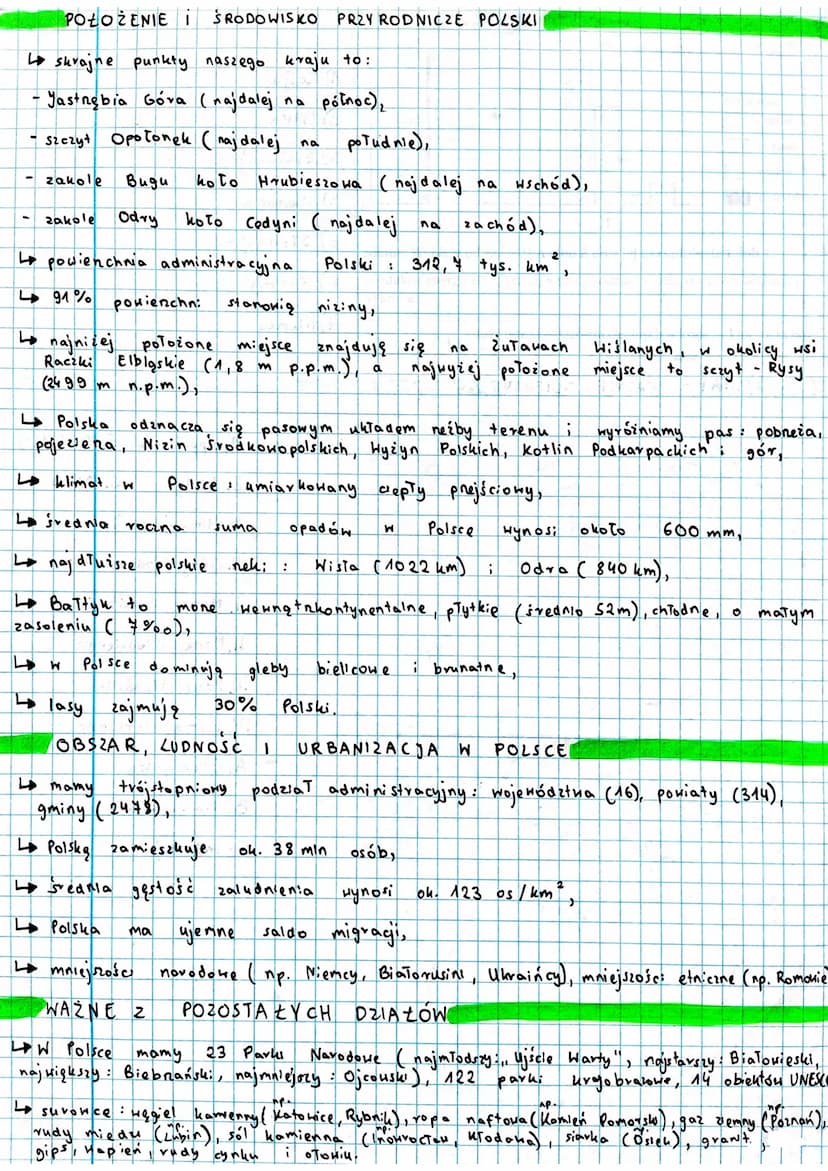 POŁOŻENIE i ŚRODOWISKO PRZYRODNICZE POLSKI
↳ skrajne punkty naszego kraju to:
- Jastrzębia Góra (najdalej na północ),
- szczyt Opołonek (najdalej na południe),
- zakole Bugu koło Hrubieszowa (najdalej na wschód),
- zakole Odry koło Cedyni (najdalej na zachód),
↳ powierzchnia administracyjna Polski : 312,7 tys. km²,
↳ 91% powierzchni stanowią niziny,
↳ najniżej położone miejsce znajduję się na Żuławach Wiślanych, w okolicy wsi
Raczki Elbląskie (1,8 m p.p.m.), a najwyżej położone miejsce to sczyt - Rysy
(2499 m n.p.m.),
↳ Polska odznacza się pasowym układem rzeźby terenu i wyróżniamy pas : pobrzeża,
pojezierza, Nizin Środkowopolskich, Wyżyn Polskich, Kotlin Podkarpackich i gór,
↳ klimat w Polsce : umiarkowany ciepły przejściowy,
↳ średnia roczna suma opadów w Polsce wynosi około 600 mm,
↳ najdłuższe polskie rzeki : Wisła (1022 km) i Odra (840 km),
↳ Bałtyk to morze wewnątrzkontynentalne, płytkie (średnio 52m), chłodne, o małym
zasoleniu (7‰),
↳ w Polsce dominują gleby bielicowe i brunatne,
↳ lasy zajmują 30% Polski.
OBSZAR, LUDNOŚĆ I URBANIZACJA W POLSCE
↳ mamy trójstopniowy podział administracyjny: województwa (16), powiaty (314),
gminy (2478),
↳ Polskę zamieszkuje ok. 38 mln osób,
↳ średnia gęstość zaludnienia wynosi ok. 123 os/km²,
↳ Polska ma ujemne saldo migracji,
↳ mniejszości narodowe (np. Niemcy, Białorusini, Ukraińcy), mniejszości etniczne (np. Romowie
WAŻNE Z POZOSTAŁYCH DZIAŁÓW
↳ W Polsce mamy 23 Parki Narodowe (najmłodszy: „Ujście Warty", najstarszy: Białowieski,
największy: Biebrzański, najmniejszy: Ojcowski), 122 parki krajobrazowe, 14 obiektów UNESCO
↳ surowce : węgiel kamienny (np. Katowice, Rybnik), ropa naftowa (np. Kamień Pomorski), gaz ziemny (np. Poznań),
rudy miedzi (Lubin), sól kamienna (Inowrocław, Kłodawa), siarka (Osiek), granit,
gips, wapień, rudy cynku i ołowiu.